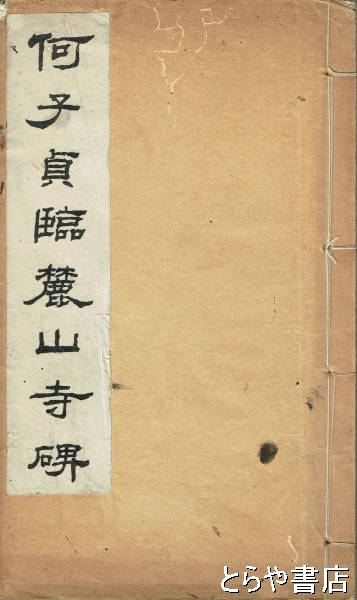 何子貞臨麓山寺碑
とらや書店